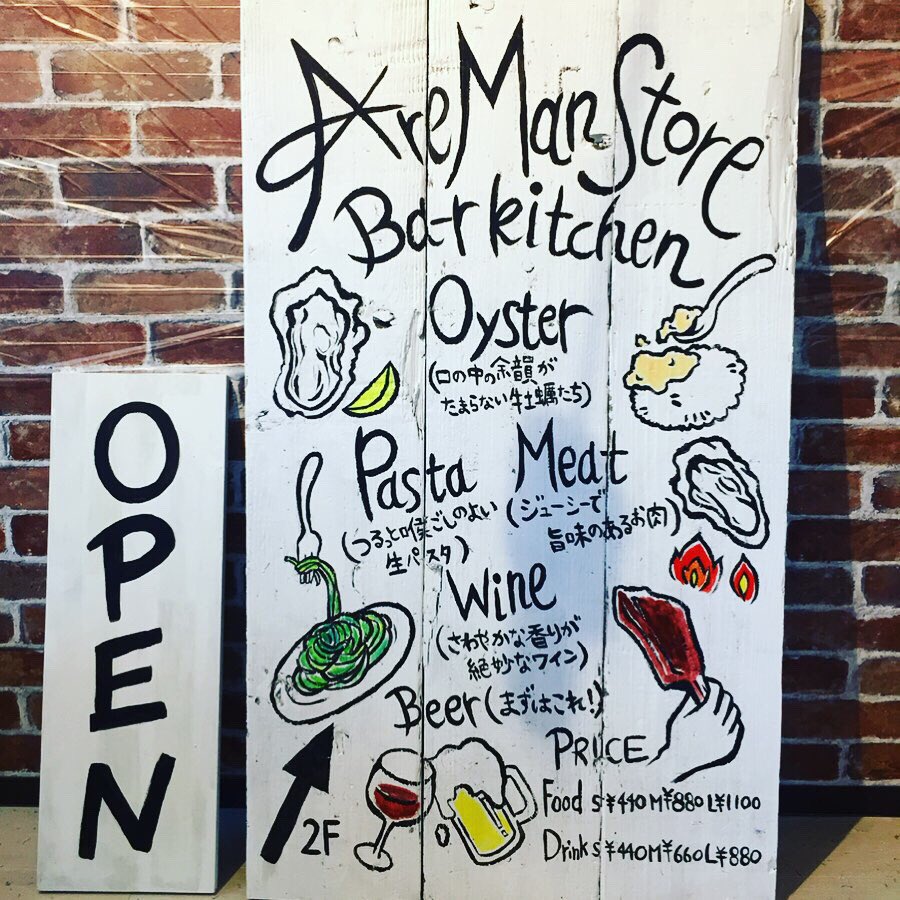 OPEN
Are Man Store
Bar kitchen
Oyster
(口の中の余韻が
たまらない牡蠣たち)
Pasta
(つるっと喉ごしのよい
生パスタ)
Meat
(ジューシーで
旨味のあるお肉)
Wine
(さわやかな香りが
絶妙なワイン)
Beer (まずはこれ!)
PRICE
Food S¥440 M¥880 L¥1100
Drink S¥440 M¥660 L¥880
2F